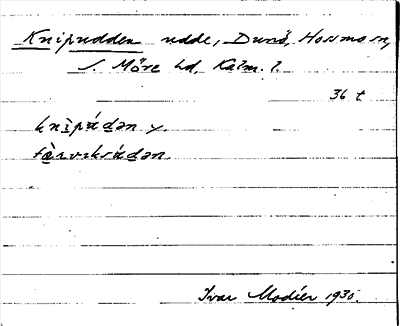 Knipudden udde, Dunö, Hossmo sn,
S. Möre hd, Kalm. l.
36 t
knìpúdən y.
færviksúdən
Ivar Modéer 1930.